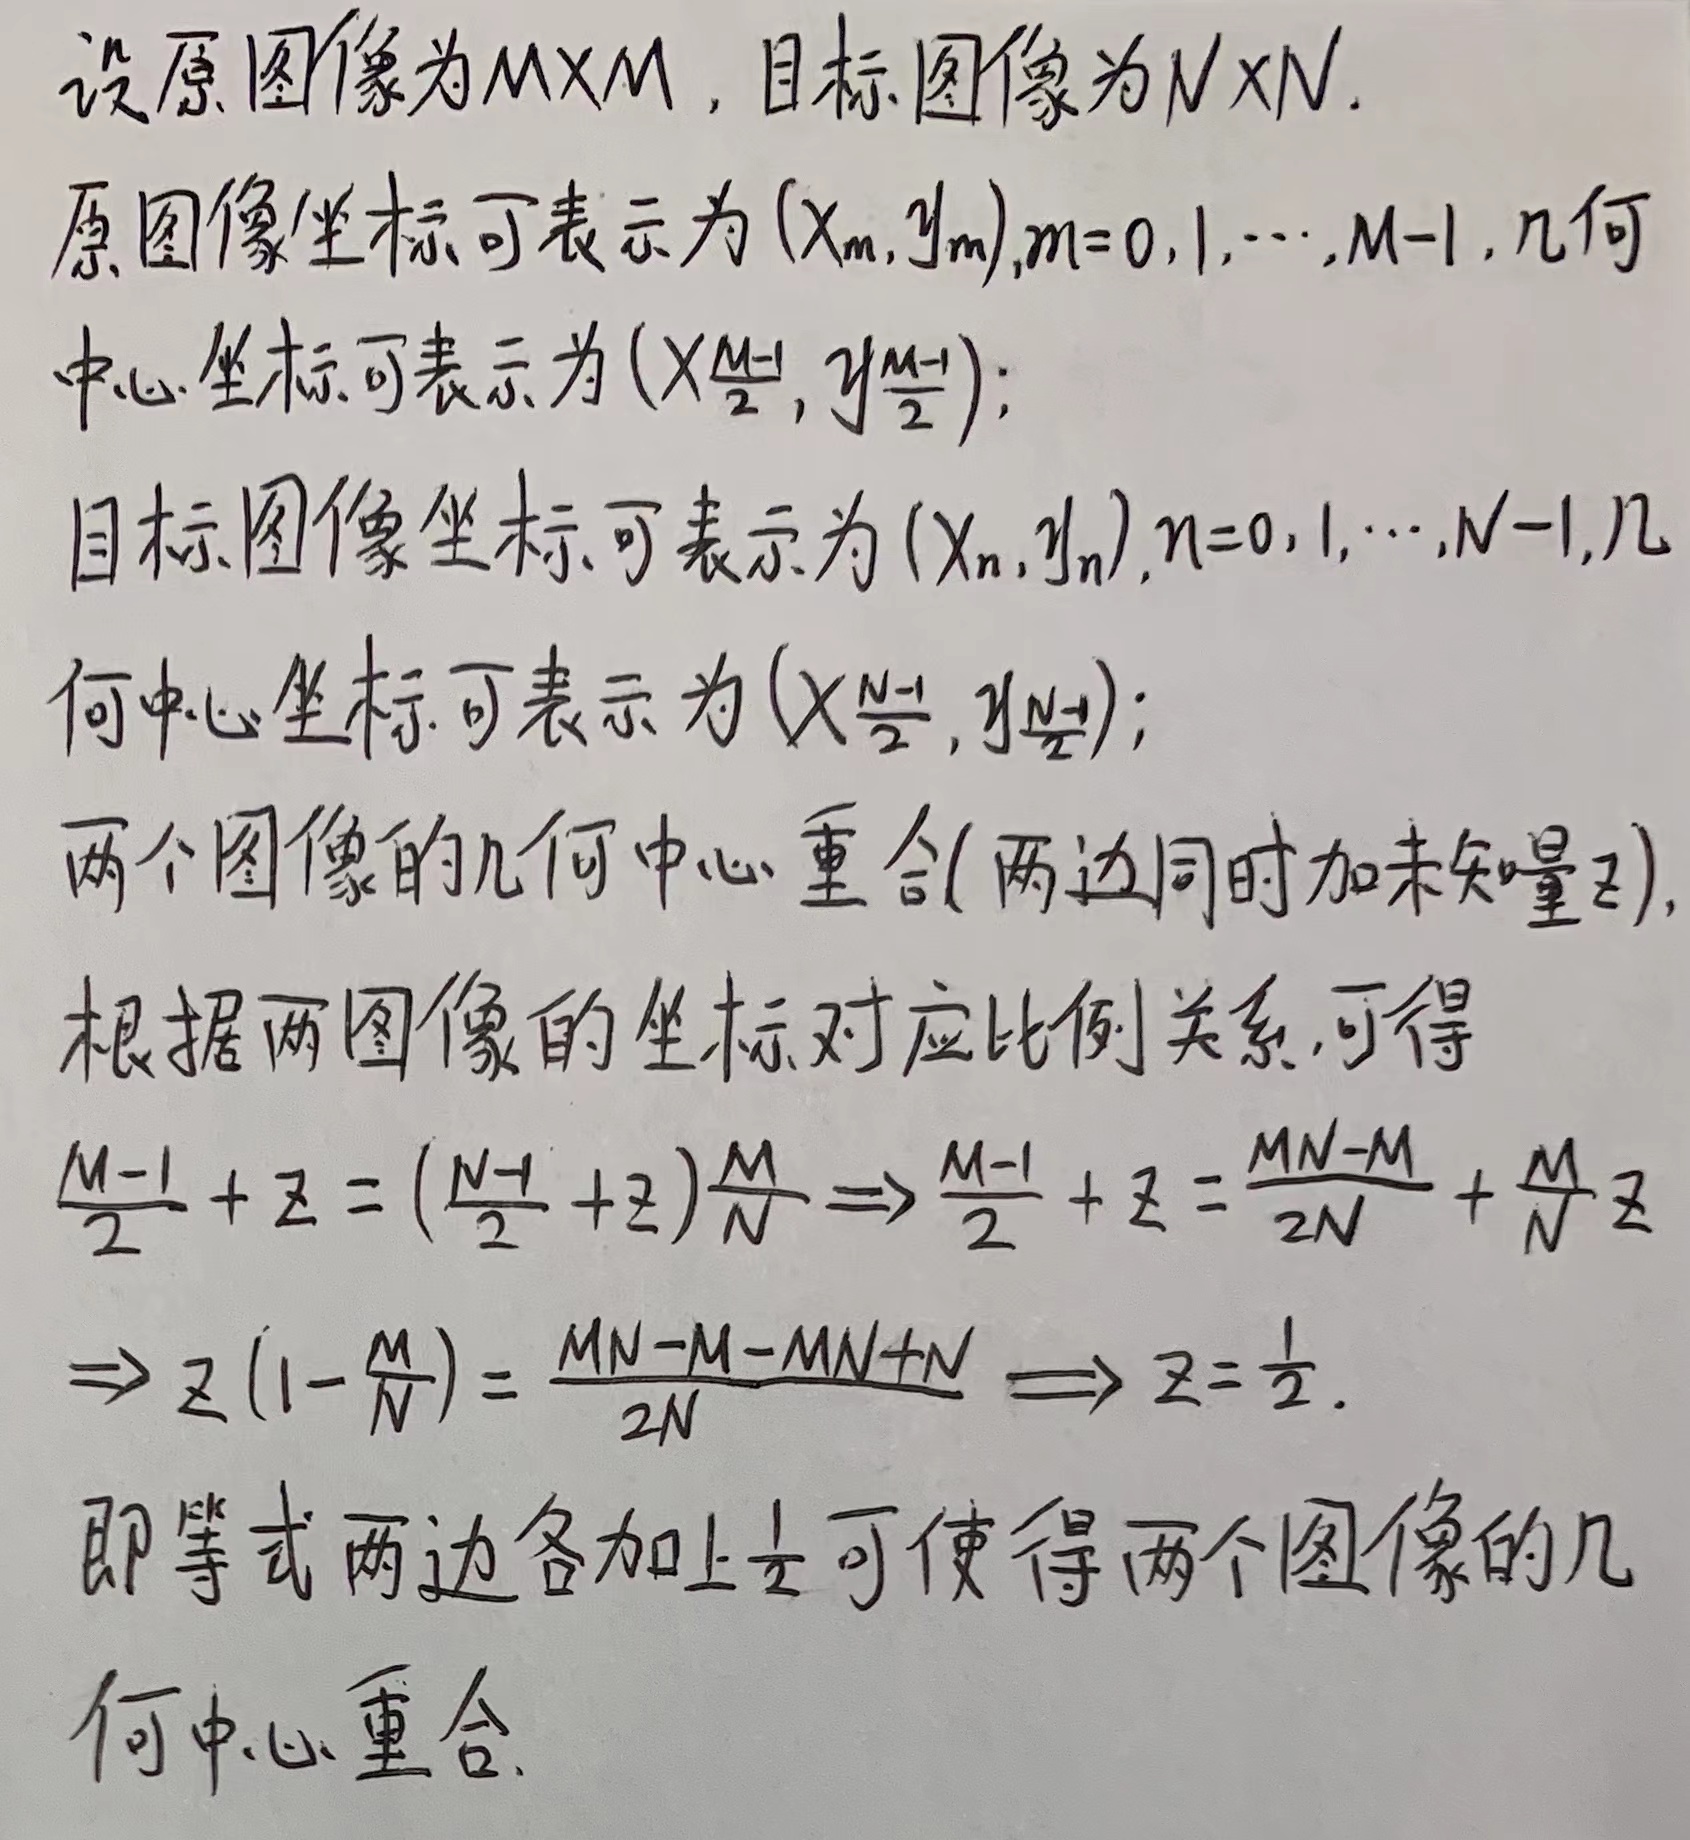 设原图像为M×M，目标图像为N×N.
原图像坐标可表示为(x_m, y_m), m=0, 1, ⋯, M-1, 几何
中心坐标可表示为(x_{\frac{M-1}{2}}, y_{\frac{M-1}{2}});
目标图像坐标可表示为(x_n, y_n), n=0, 1, ⋯, N-1, 几
何中心坐标可表示为(x_{\frac{N-1}{2}}, y_{\frac{N-1}{2}});
两个图像的几何中心重合(两边同时加未知量z),
根据两图像的坐标对应比例关系,可得
\frac{M-1}{2} + z = (\frac{N-1}{2} + z)\frac{M}{N} ⇒ \frac{M-1}{2} + z = \frac{MN-M}{2N} + \frac{M}{N}z
⇒ z(1-\frac{M}{N}) = \frac{MN-M-MN+N}{2N} ⟹ z=\frac{1}{2}.
即等式两边各加上\frac{1}{2}可使得两个图像的几
何中心重合.